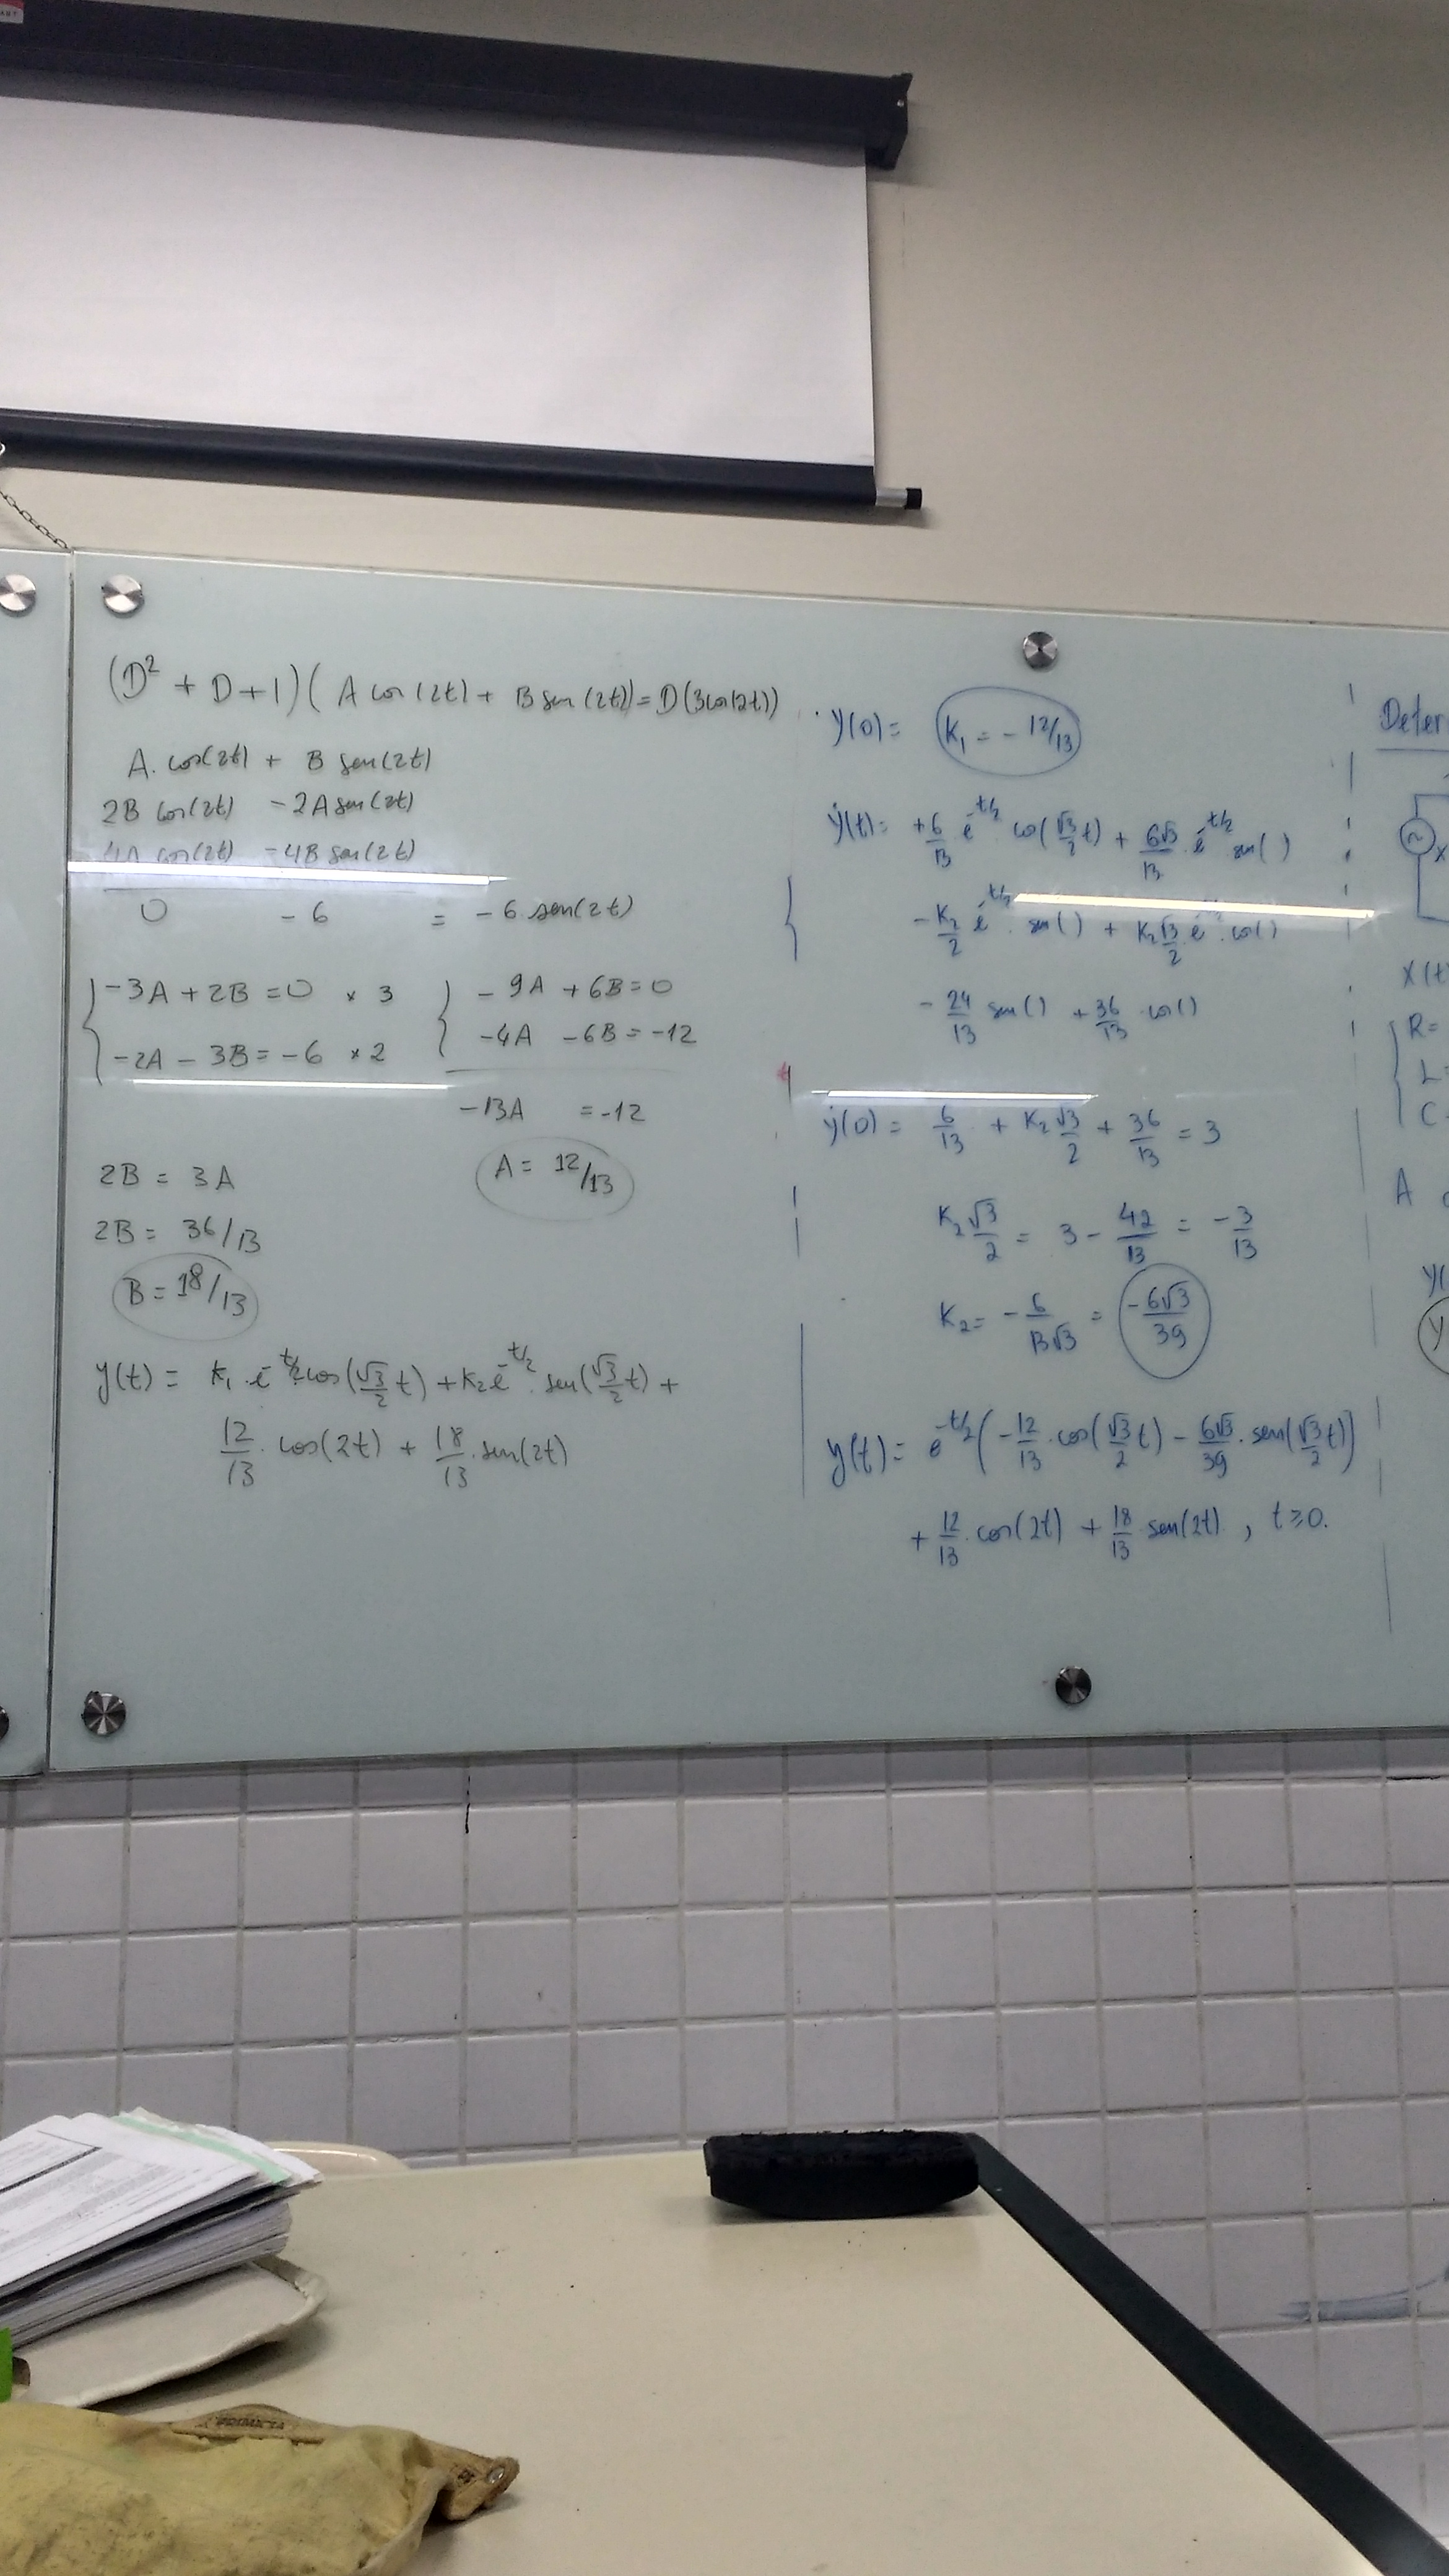 (D² + D + 1)(A cos(2t) + B sen(2t)) = D(3cos(2t))
A. cos(2t) + B sen(2t)
2B cos(2t) - 2A sen(2t)
4A cos(2t) -4B sen(2t)
0 - 6 = -6 sen(2t)
-3A + 2B = 0 × 3
-2A - 3B = -6 × 2
-9A + 6B = 0
-4A - 6B = -12
-13A = -12
A = 12/13
2B = 3A
2B = 36/13
B = 18/13
y(t) = K₁ . e^-t/2 . cos(√3/2 t) + K₂ e^-t/2 . sen(√3/2 t) +
12/13 . cos(2t) + 18/13 . sen(2t)
y(0) = K₁ = - 12/13
ẏ(t) = +6/13 e^-t/2 cos(√3/2 t) + 6√3/13 . e^-t/2 sen( )
- K₂/2 e^-t/2 . sen( ) + K₂√3/2 e^-t/2 . cos( )
- 24/13 sen( ) + 36/13 . cos( )
ẏ(0) = 6/13 + K₂ √3/2 + 36/13 = 3
K₂ √3/2 = 3 - 42/13 = - 3/13
K₂ = - 6/13√3 = -6√3/39
y(t) = e^-t/2 (-12/13 . cos(√3/2 t) - 6√3/39 . sen(√3/2 t))
+ 12/13 . cos(2t) + 18/13 sen(2t) , t ≥ 0.
Deter
X
X(t
R=
L=
C
A
y(
y